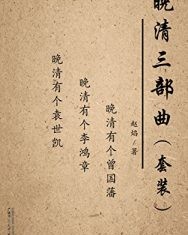 晚清三部曲（套装）
赵焰/著
晚清有个曾国藩
晚清有个李鸿章
晚清有个袁世凯